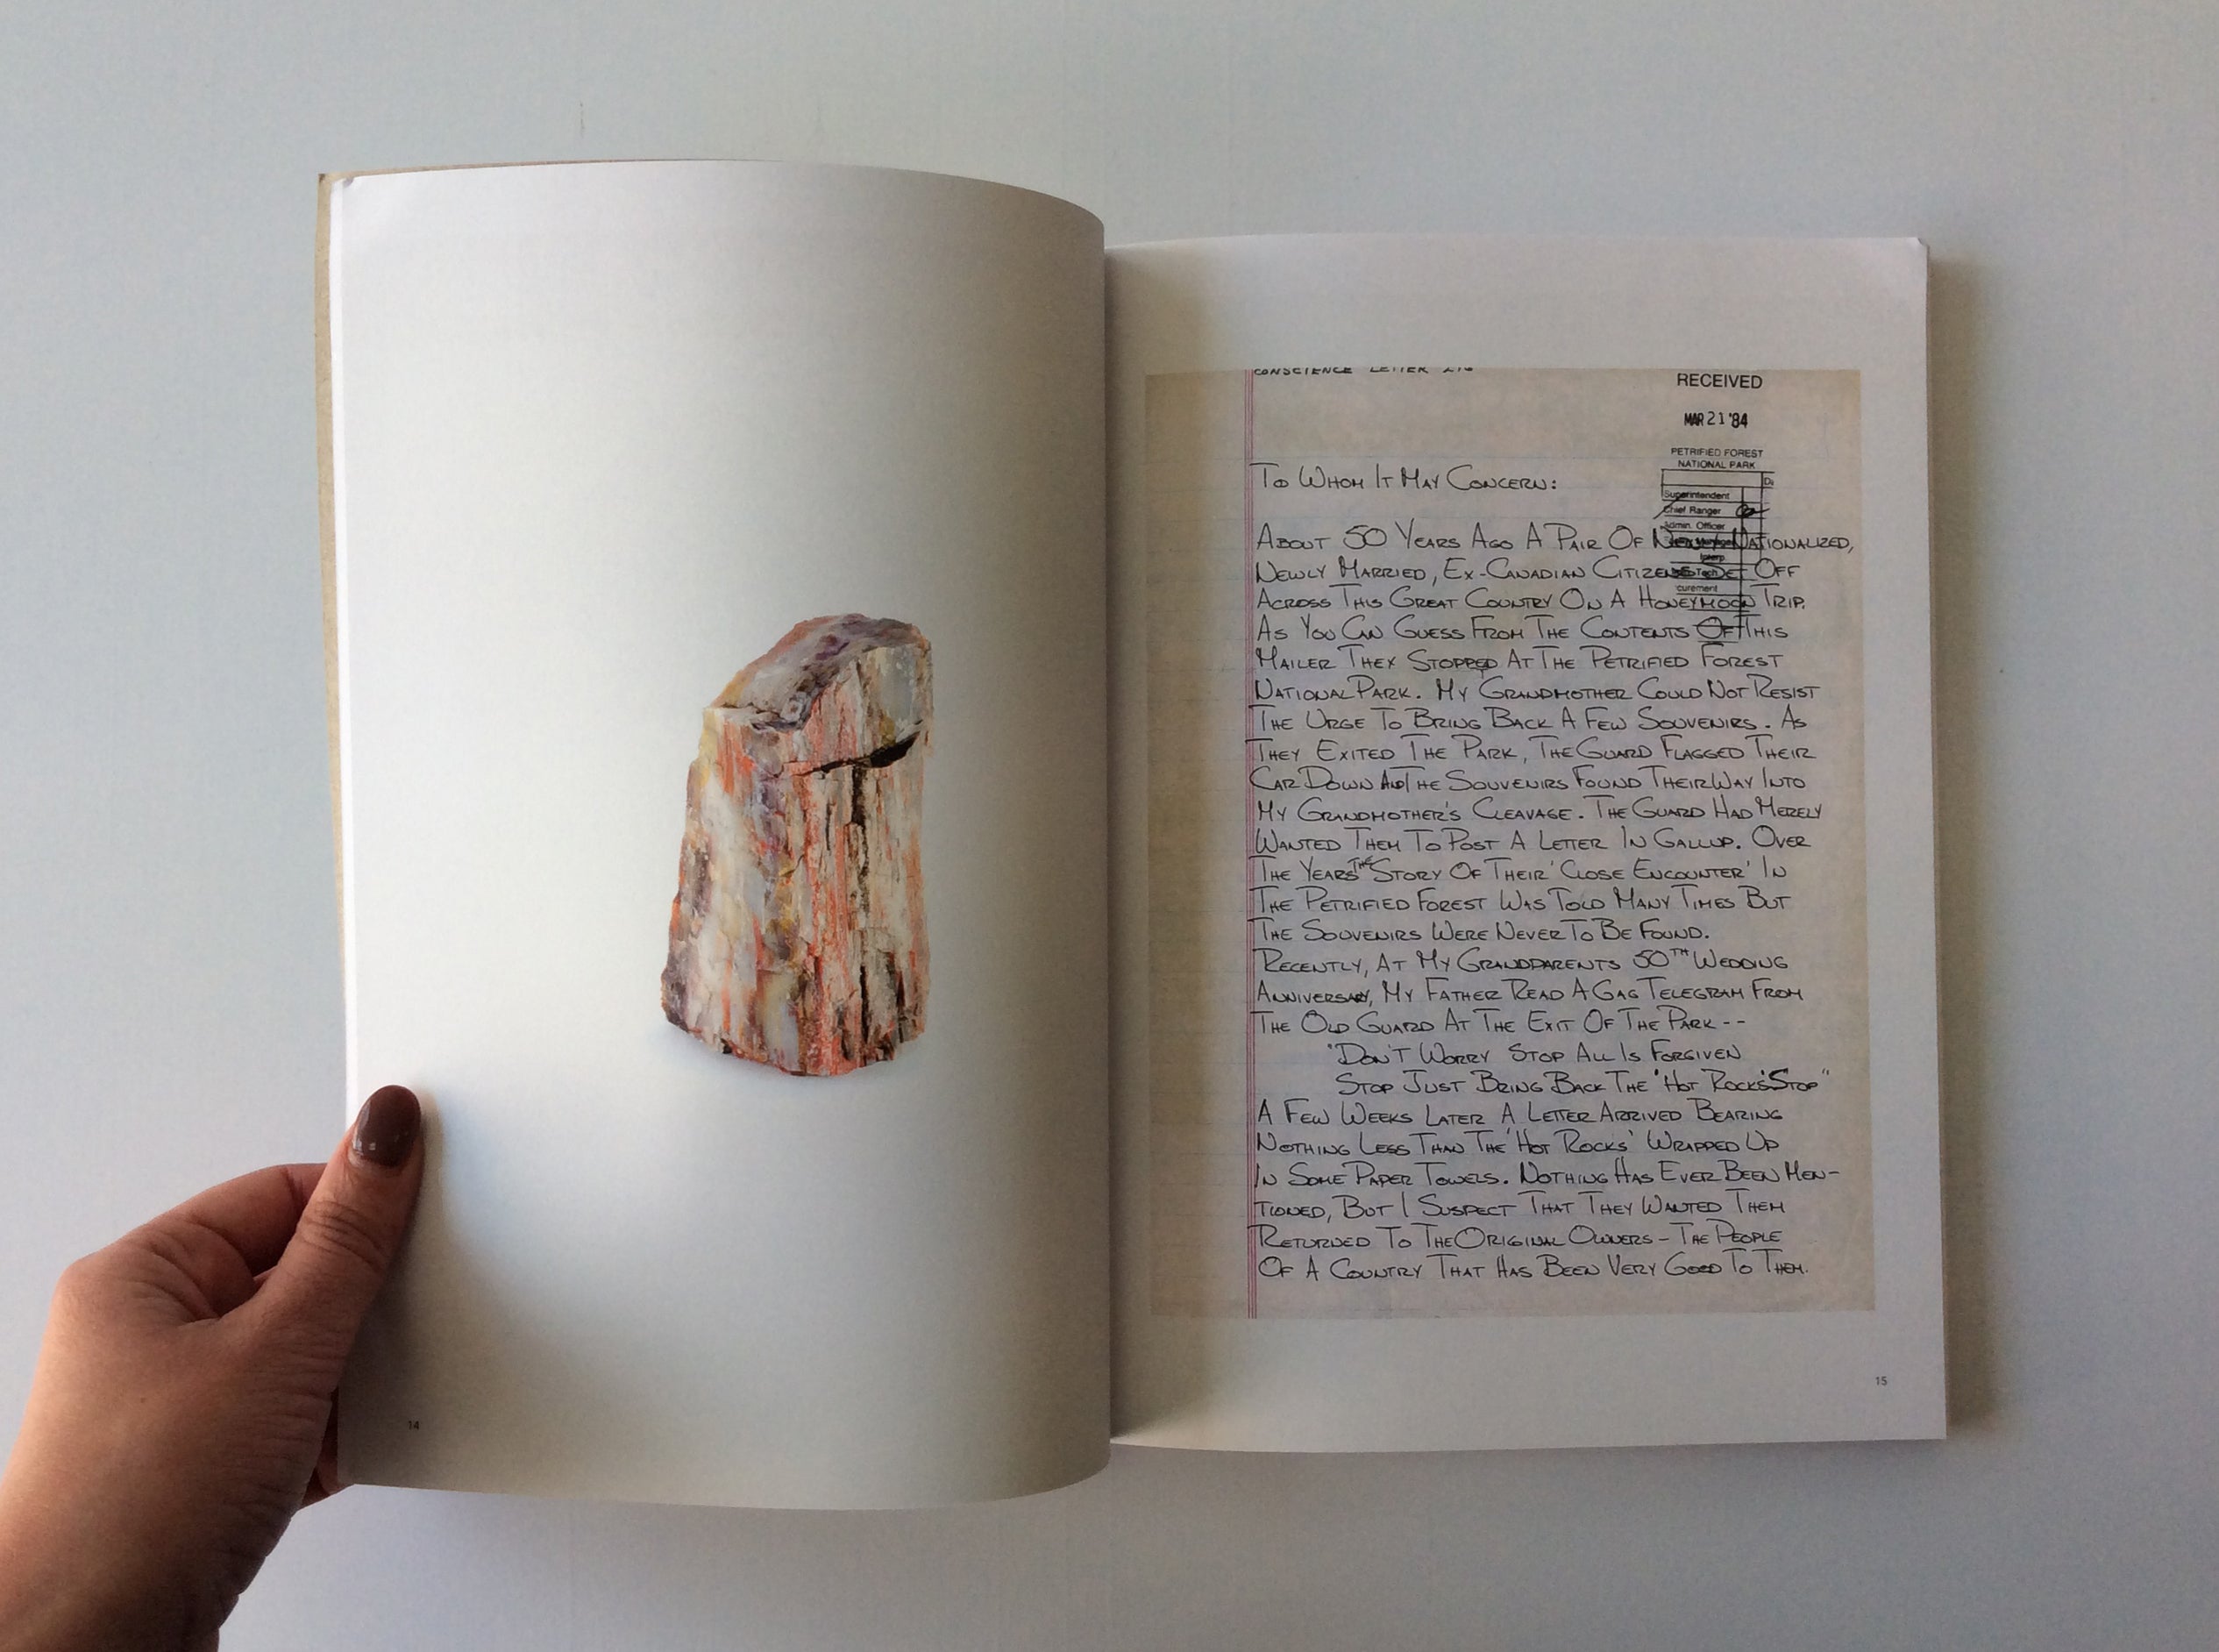 14
CONSCIENCE LETTER
RECEIVED
MAR 21 '84
PETRIFIED FOREST
NATIONAL PARK
Superintendent
Chief Ranger
Admin. Officer
Interp
Tech
curement
To Whom It May Concern:
About 50 Years Ago A Pair Of Newly Nationalized,
Newly Married, Ex-Canadian Citizens Set Off
Across This Great Country On A Honeymoon Trip.
As You Can Guess From The Contents Of This
Mailer They Stopped At The Petrified Forest
National Park. My Grandmother Could Not Resist
The Urge To Bring Back A Few Souvenirs. As
They Exited The Park, The Guard Flagged Their
Car Down And The Souvenirs Found Their Way Into
My Grandmother's Cleavage. The Guard Had Merely
Wanted Them To Post A Letter In Gallup. Over
The Years The Story Of Their 'Close Encounter' In
The Petrified Forest Was Told Many Times But
The Souvenirs Were Never To Be Found.
Recently, At My Grandparents 50TH Wedding
Anniversary, My Father Read A Gag Telegram From
The Old Guard At The Exit Of The Park--
"Don't Worry Stop All Is Forgiven
Stop Just Bring Back The 'Hot Rocks' Stop"
A Few Weeks Later A Letter Arrived Bearing
Nothing Less Than The 'Hot Rocks' Wrapped Up
In Some Paper Towels. Nothing Has Ever Been Men-
tioned, But I Suspect That They Wanted Them
Returned To The Original Owners - The People
Of A Country That Has Been Very Good To Them.
15